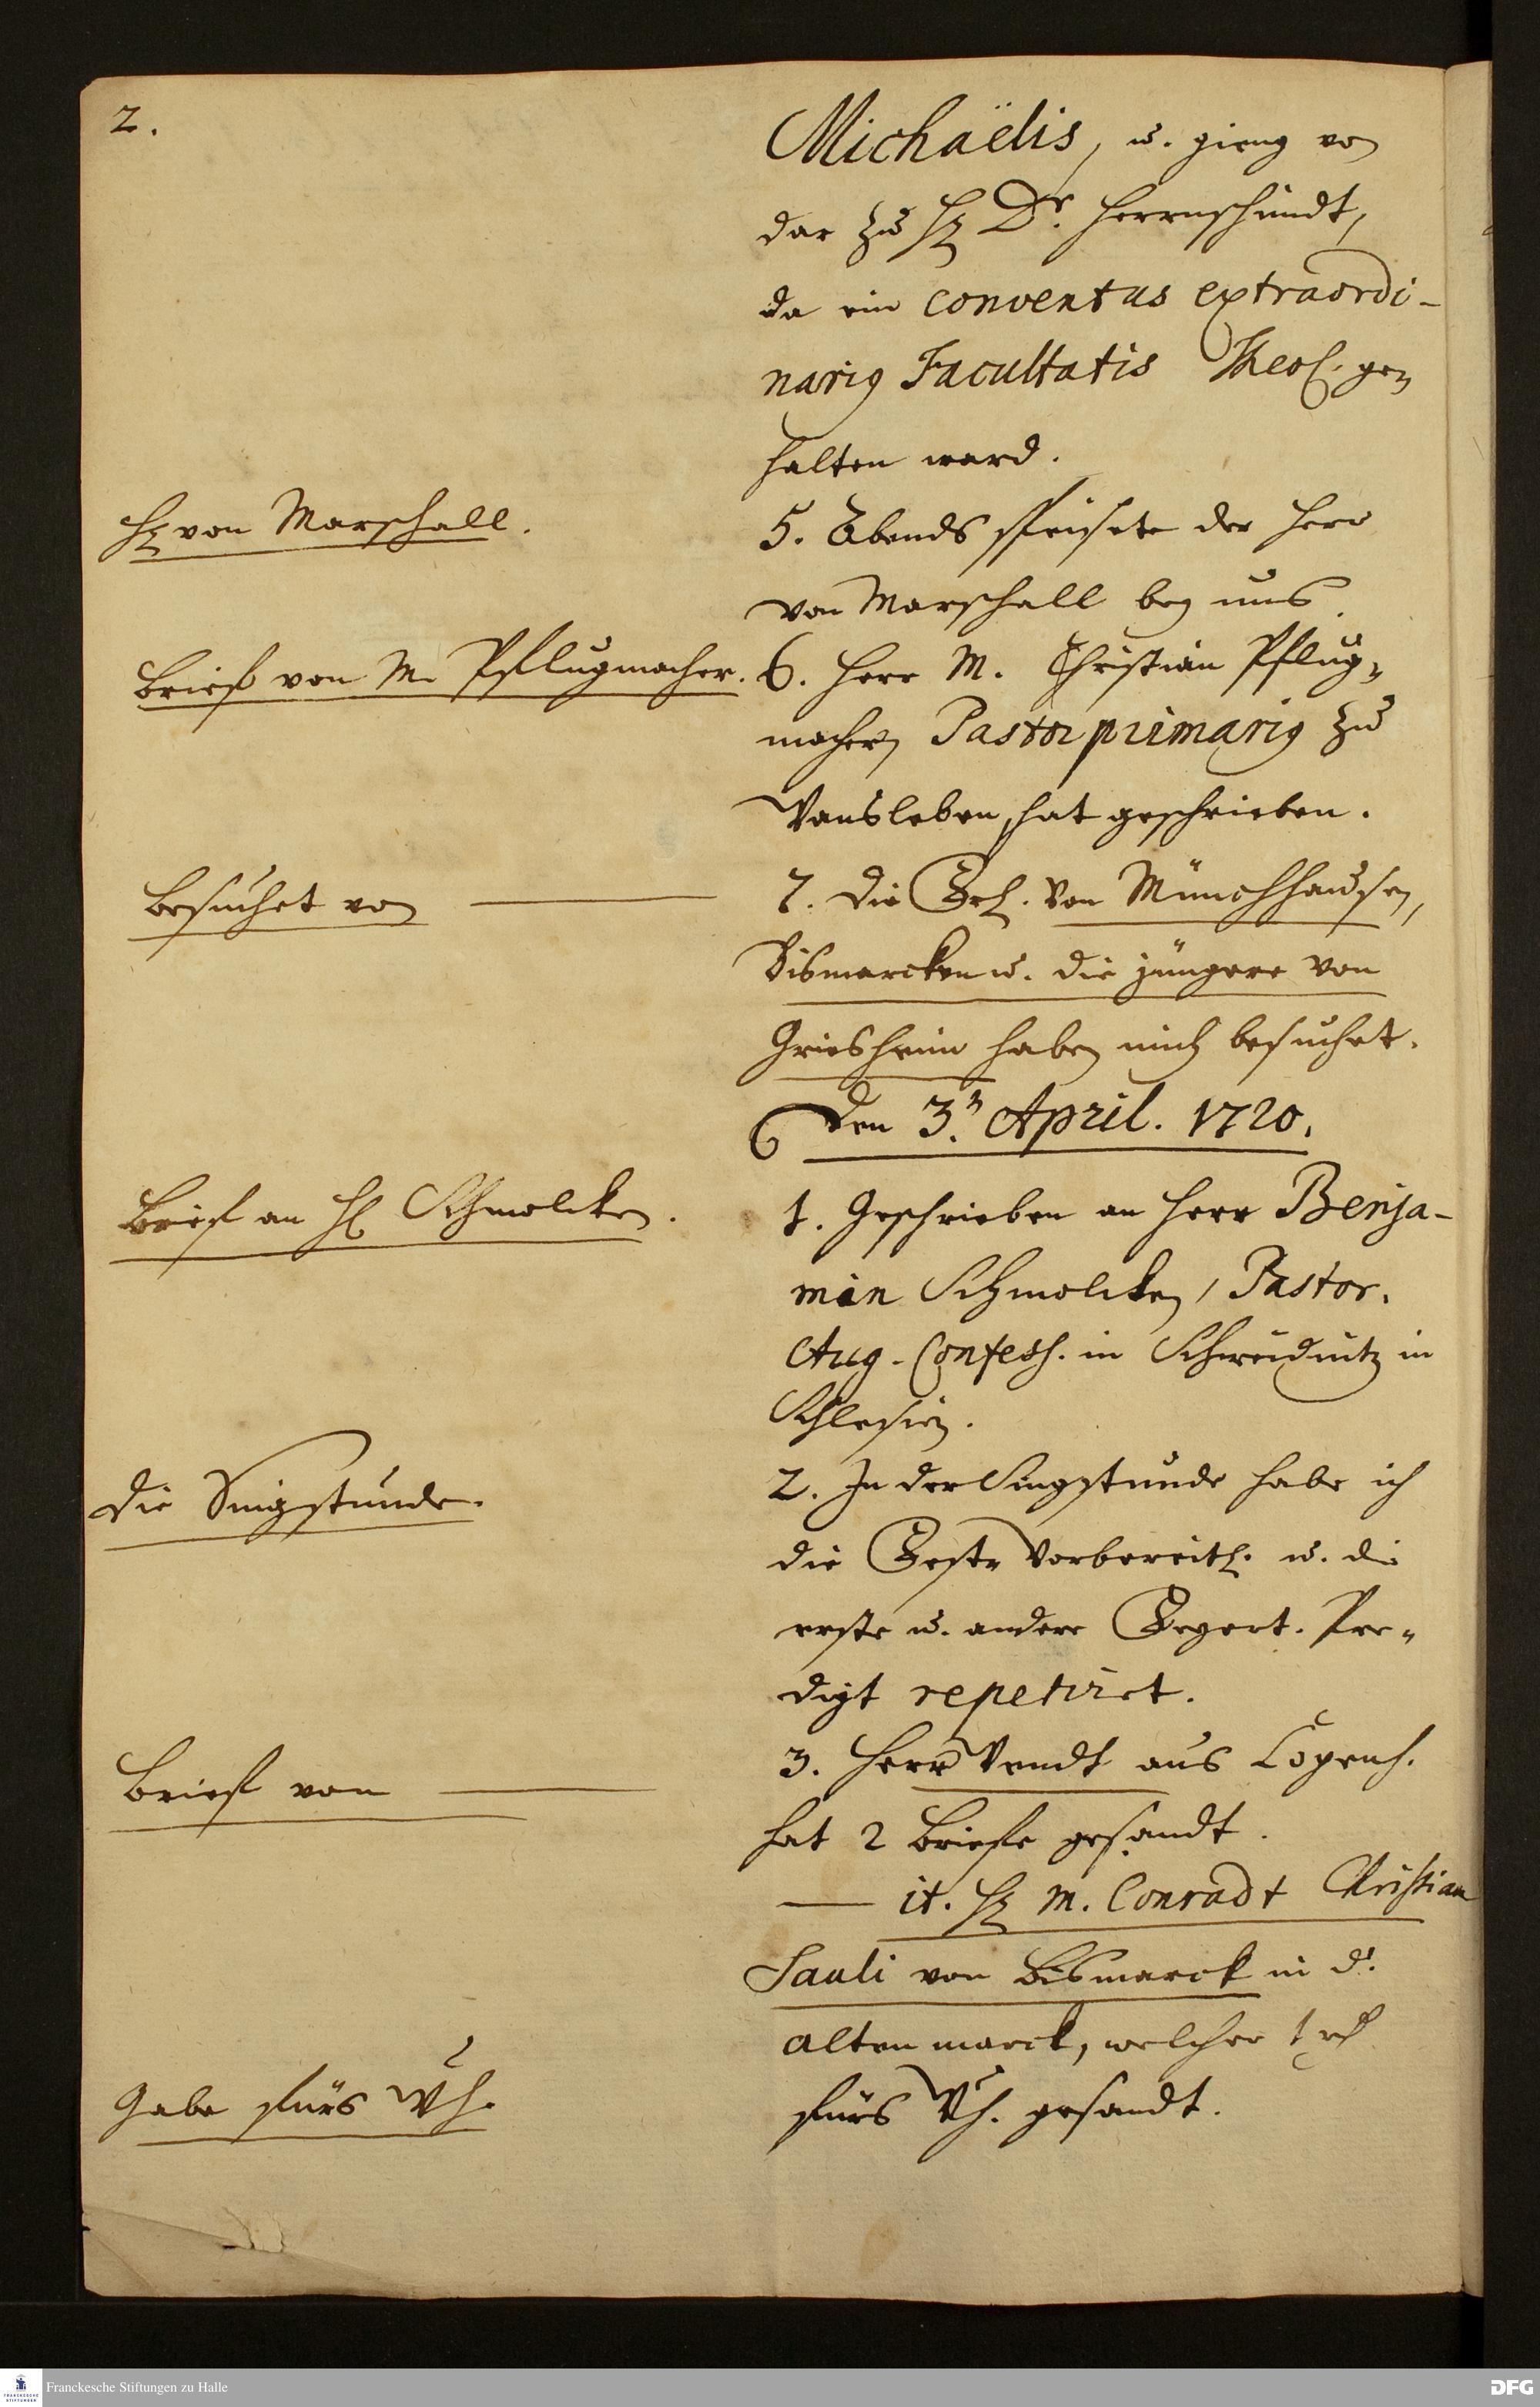 2.
Michaëlis, u. gieng von
dar zu H. Dr. Herrnschmidt,
da ein conventus extraordi-
narius Facultatis Theol. ge-
halten ward.
H. von Marschall.
5. Abends speisete der Herr
von Marschall bey uns.
Brief von M. Pflugmacher.
6. Herr M. Christian Pflug-
macher, Pastor primarius zu
Wansleben, hat geschrieben.
Besuchet von
7. Die Frl. von Münchhausen,
Bismarcken u. die jüngere von
Griesheim haben mich besuchet.
Den 3. April. 1720.
Brief an H. Schmolcken.
1. Geschrieben an Herr Benja-
min Schmolcken, Pastor.
Aug. Confess. in Schweidnitz in
Schlesien.
Die Singstunde.
2. In der Singstunde habe ich
die Fest-Vorbereit. u. die
erste u. andere Feyert. Pre-
digt repetiret.
Brief von
3. Herr Wendt aus Copenh.
hat 2 Briefe gesandt.
it. H. M. Conradt Christian
Sauli von Bismarck in d.
alten marck, welcher 1 rh
fürs Wh. gesandt.
Gabe fürs Wh.
Franckesche Stiftungen zu Halle
FRANCKESCHE
STIFTUNGEN
DFG